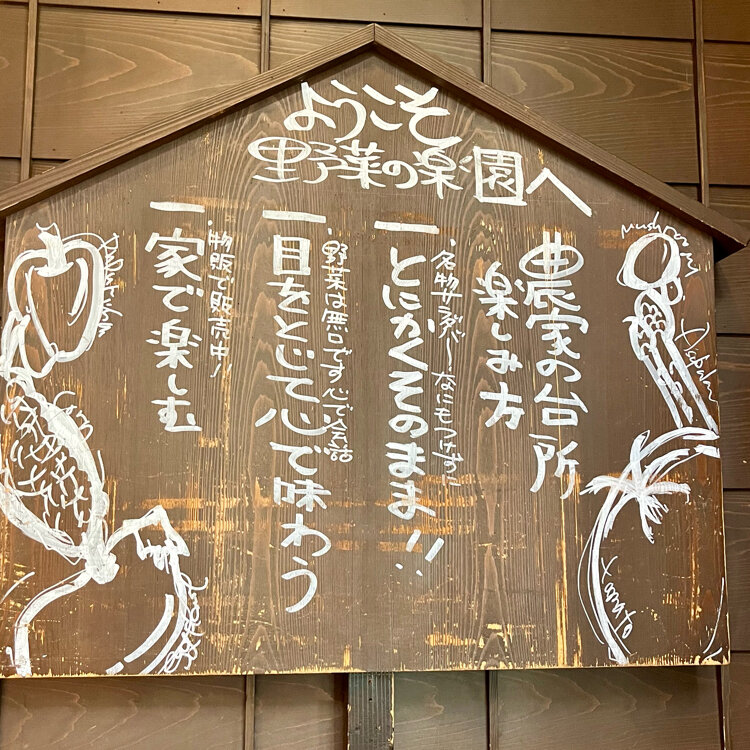 ようこそ
野菜の楽園へ
農家の台所
楽しみ方
一とにかくそのまま!!
・名物サラダバー なにもつけずに
一目をとじて心で味わう
・野菜は無口です 心で会話
一家で楽しむ
・物販で販売中!
mushroom
tomato